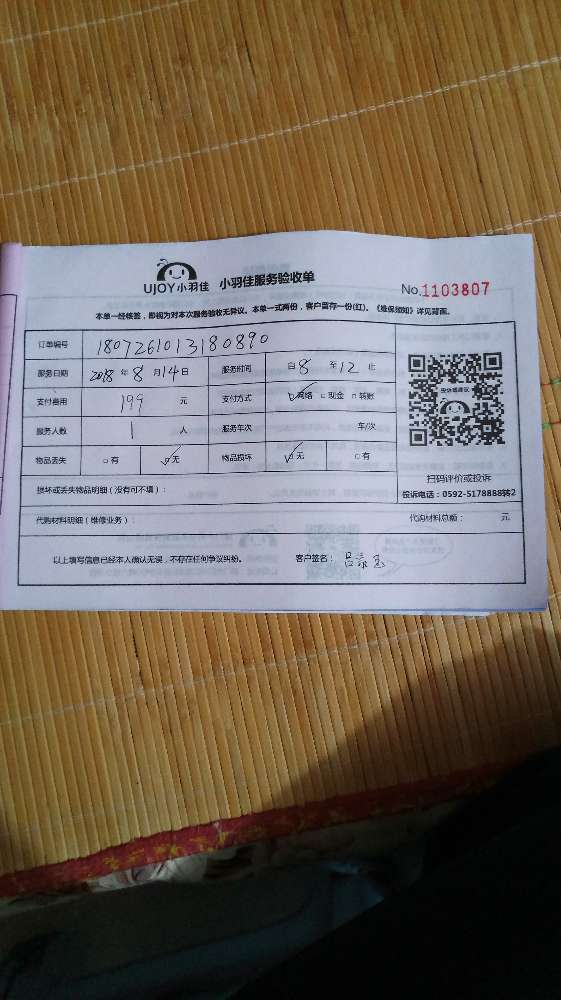 UJOY小羽佳 小羽佳服务验收单 No.1103807
本单一经核签，即视为对本次服务验收无异议。本单一式两份，客户留存一份(红)。《维保须知》详见背面。
订单编号 1807261013180890
服务日期 2018年8月14日 服务时间 自8至12止
支付费用 199元 支付方式 ☑网络 □现金 □转账
服务人数 1人 服务车次 车/次
物品丢失 □有 ☑无 物品损坏 ☑无 □有
扫码评价或投诉
损坏或丢失物品明细（没有可不填）： 投诉电话：0592-5178888转2
代购材料明细（维修业务）： 代购材料总额： 元
以上填写信息已经本人确认无误，不存在任何争议纠纷。 客户签名：